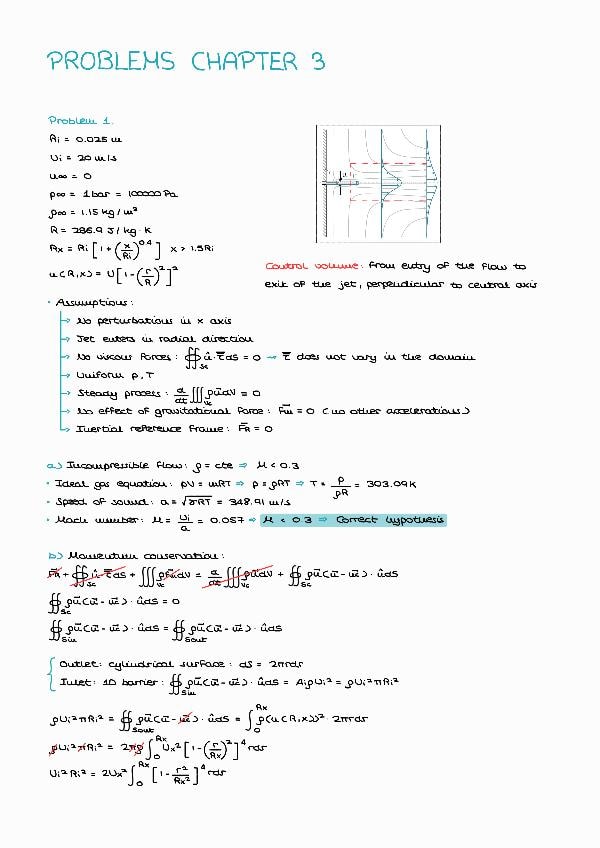 PROBLEMS CHAPTER 3
Problem 1.
Ri = 0.025 m
Ui = 20 m/s
u∞ = 0
p∞ = 1 bar = 100000 Pa
ρ∞ = 1.15 kg/m³
R = 286.9 J/kg·K
Rx = Ri [1 + (x/Ri)^0.4] x > 1.5Ri
u(R,x) = U[1-(r/R)²]²
Control volume: from entry of the flow to
exit of the jet, perpendicular to central axis
• Assumptions:
→ No perturbations in x axis
→ Jet enters in radial direction
→ No viscous forces: ∯_Sc û·τ̿dS = 0 → τ̿ does not vary in the domain
→ Uniform ρ, T
→ Steady process: d/dt ∭_Vc ρu⃗dV = 0
→ No effect of gravitational force: F⃗m = 0 (no other accelerations)
→ Inertial reference frame: F⃗R = 0
a) Incompressible flow: ρ = cte ⇒ M < 0.3
• Ideal gas equation: pV = mRT ⇒ p = ρRT ⇒ T = p/ρR = 303.09K
• Speed of sound: a = √γRT = 348.91 m/s
• Mach number: M = Ui/a = 0.057 ⇒ M < 0.3 ⇒ Correct hypothesis
b) Momentum conservation:
F⃗R + ∯_Sc û·τ̿dS + ∭_Vc ρu⃗dV = d/dt ∭_Vc ρu⃗dV + ∯_Sc ρu⃗(u⃗ - u⃗c)·ûdS
∯_Sc ρu⃗(u⃗ - u⃗c)·ûdS = 0
∯_Sin ρu⃗(u⃗ - u⃗c)·ûdS = ∯_Sout ρu⃗(u⃗ - u⃗c)·ûdS
Outlet: cylindrical surface: dS = 2πrdr
Inlet: 1D barrier: ∯_Sin ρu⃗(u⃗ - u⃗c)·ûdS = AiρUi² = ρUi²πRi²
ρUi²πRi² = ∯_Sout ρu⃗(u⃗ - u⃗c)·ûdS = ∫_0^Rx ρ(u(R,x))² 2πrdr
ρUi²πRi² = 2πρ ∫_0^Rx Ux² [1-(r/Rx)²]⁴ rdr
Ui²Ri² = 2Ux² ∫_0^Rx [1 - r²/Rx²]⁴ rdr